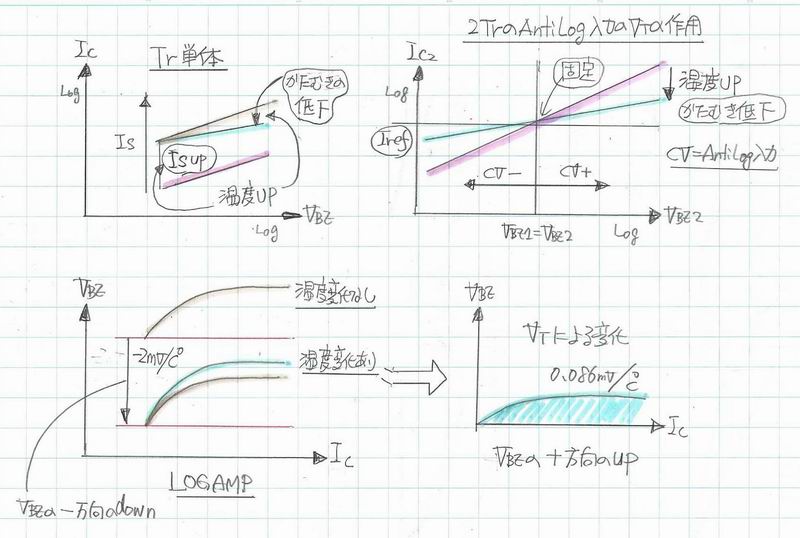 Ic
Log
Tr単体
かたむきの
低下
Is
Is up
温度UP
Log
VBE
2TrのAntiLog入力のVTの作用
Ic2
Log
固定
温度UP
かたむき低下
Iref
CV=AntiLog入力
CV−
CV+
VBE1=VBE2
Log
VBE2
VBE
温度変化なし
-2mV/℃
温度変化あり
Ic
LOGAMP
VBEの−方向のdown
VBE
VTによる変化
0.086mV/℃
Ic
VBEの+方向のup